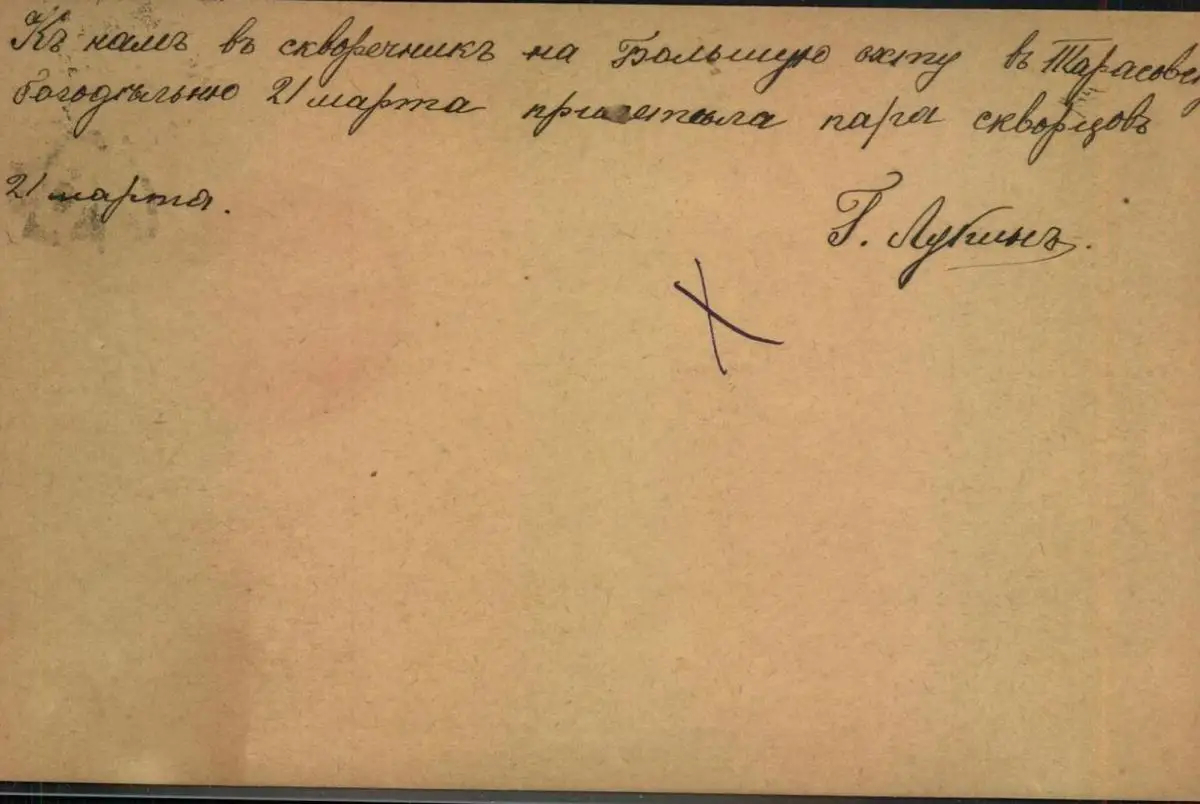 Къ намъ въ скворечникъ на Большую охту въ Тарасовск
богодѣльню 21 марта прилетѣла пара скворцовъ
21 марта.
Г. Лукинъ.